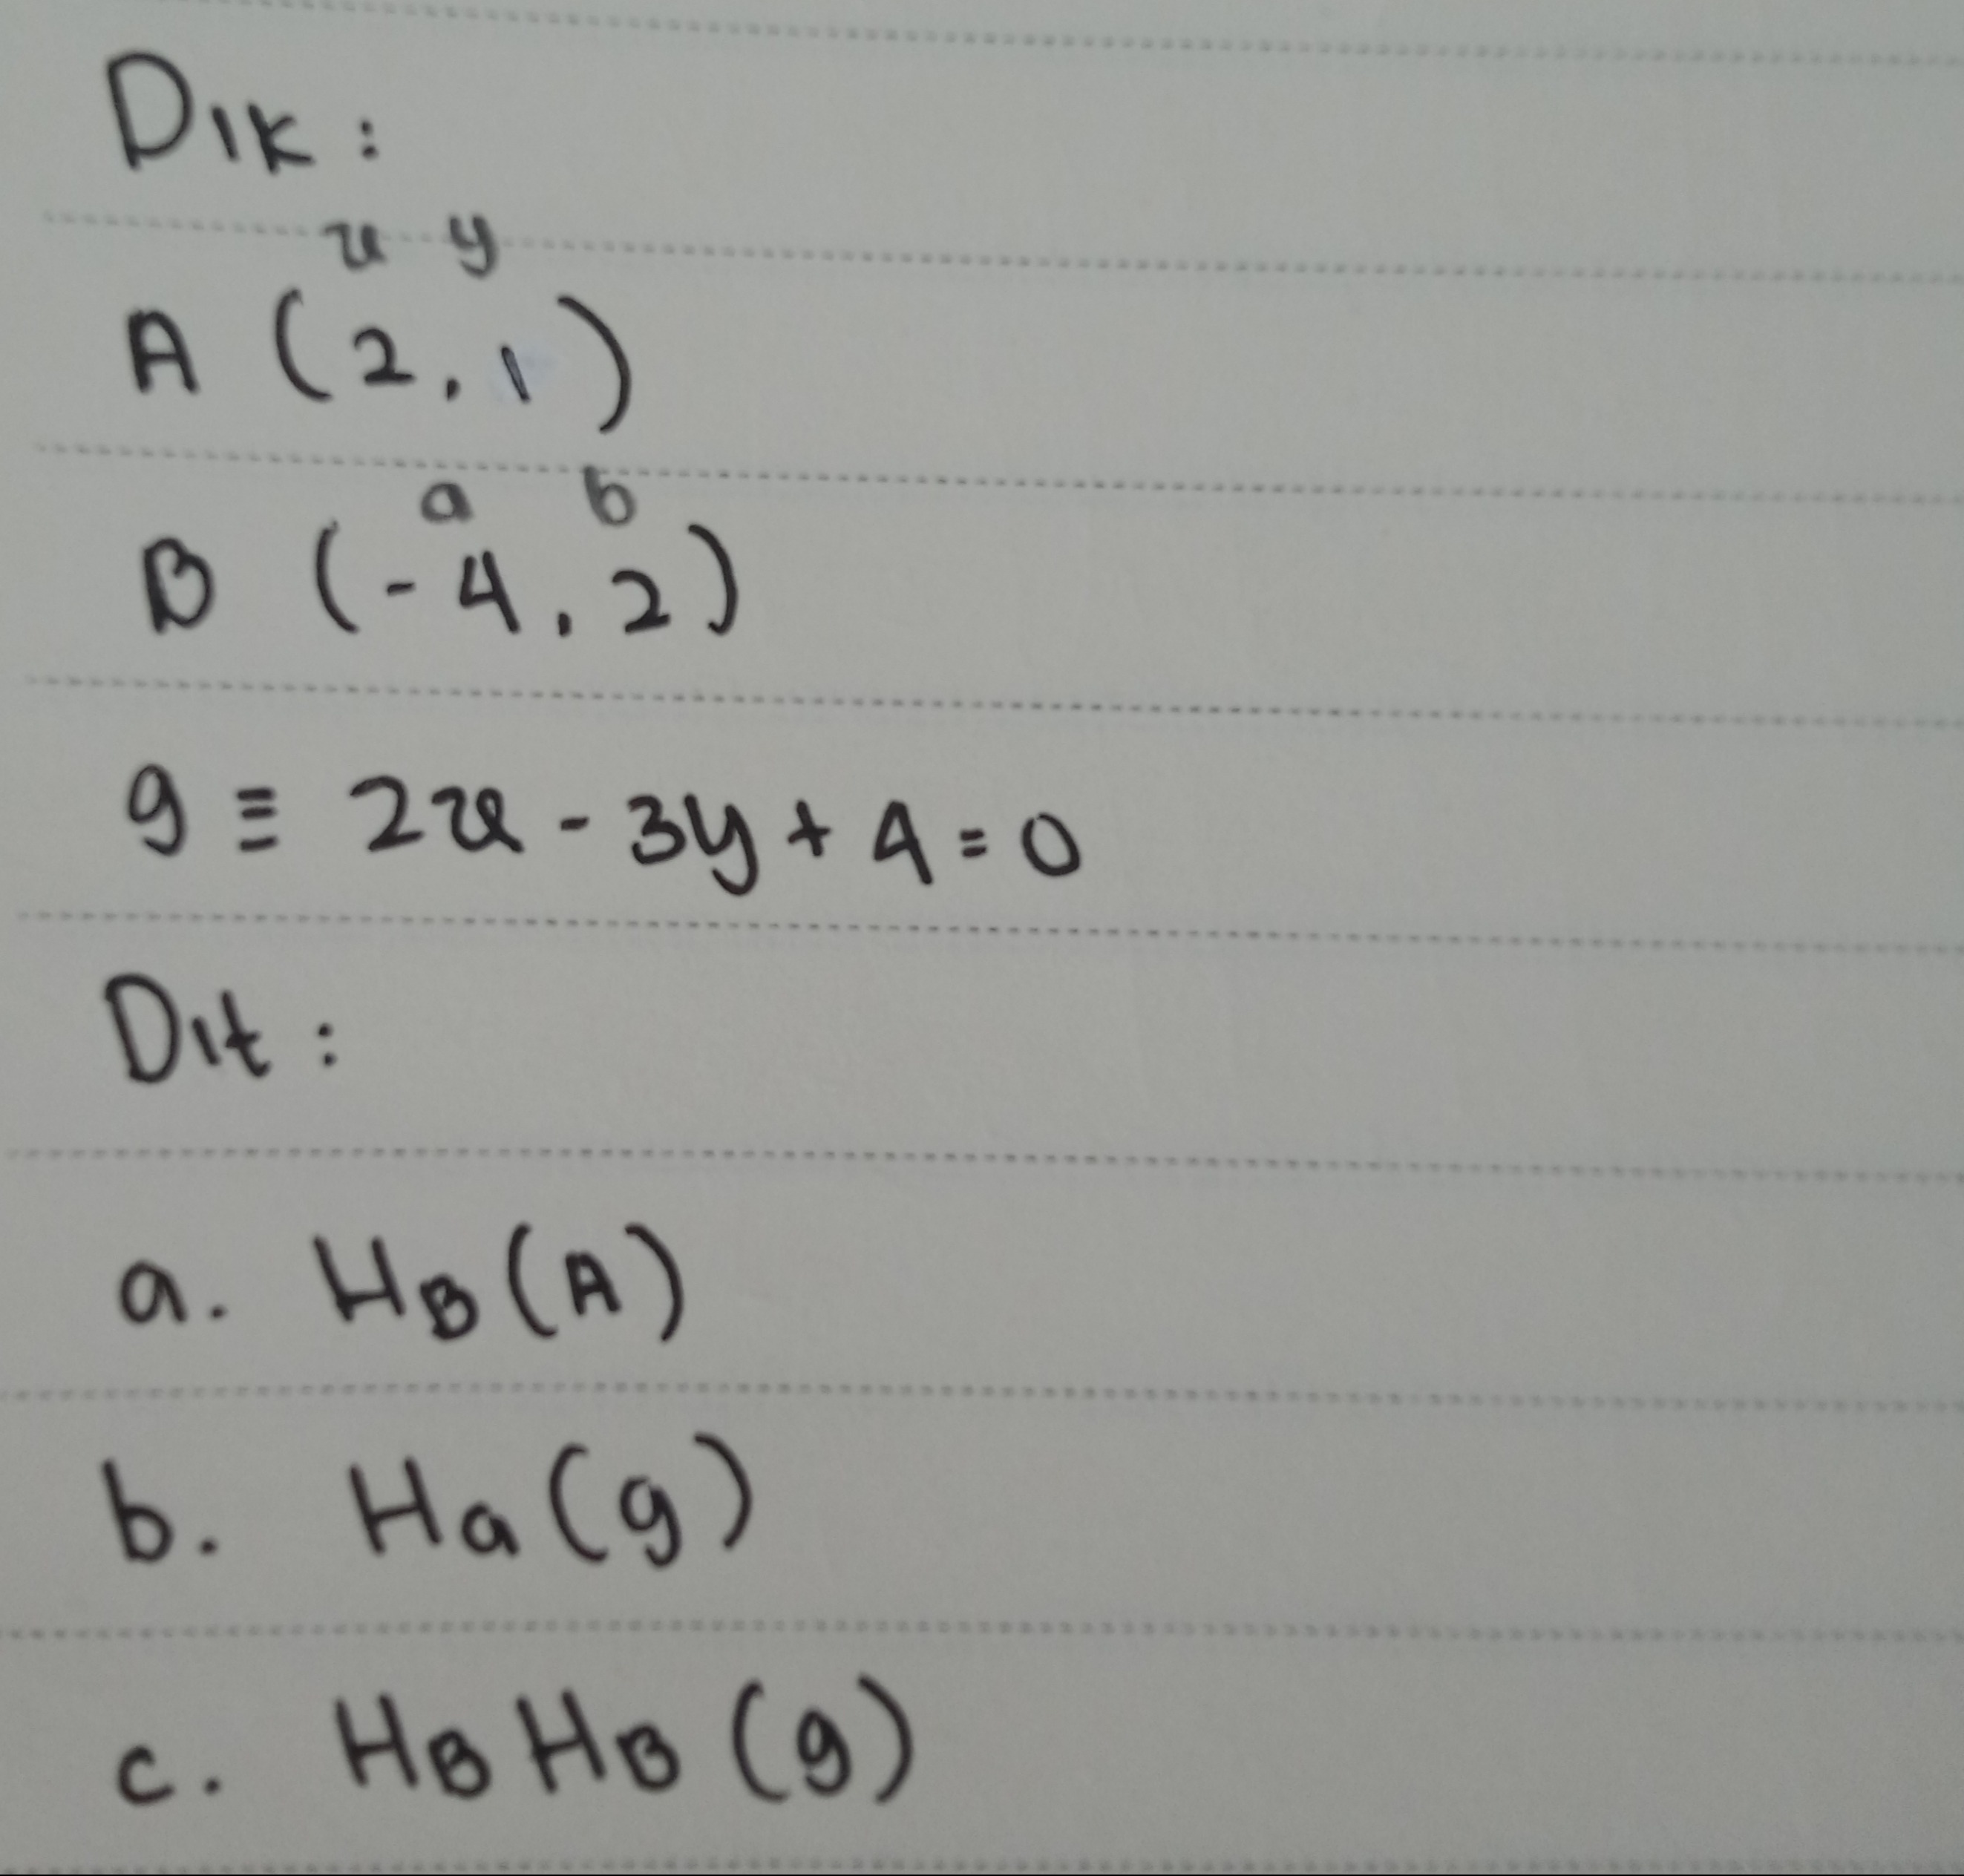 Dik :
x y
A (2, 1)
a b
B (-4, 2)
g ≡ 2x - 3y + 4 = 0
Dit :
a. HB (A)
b. Ha (g)
c. HB HB (g)